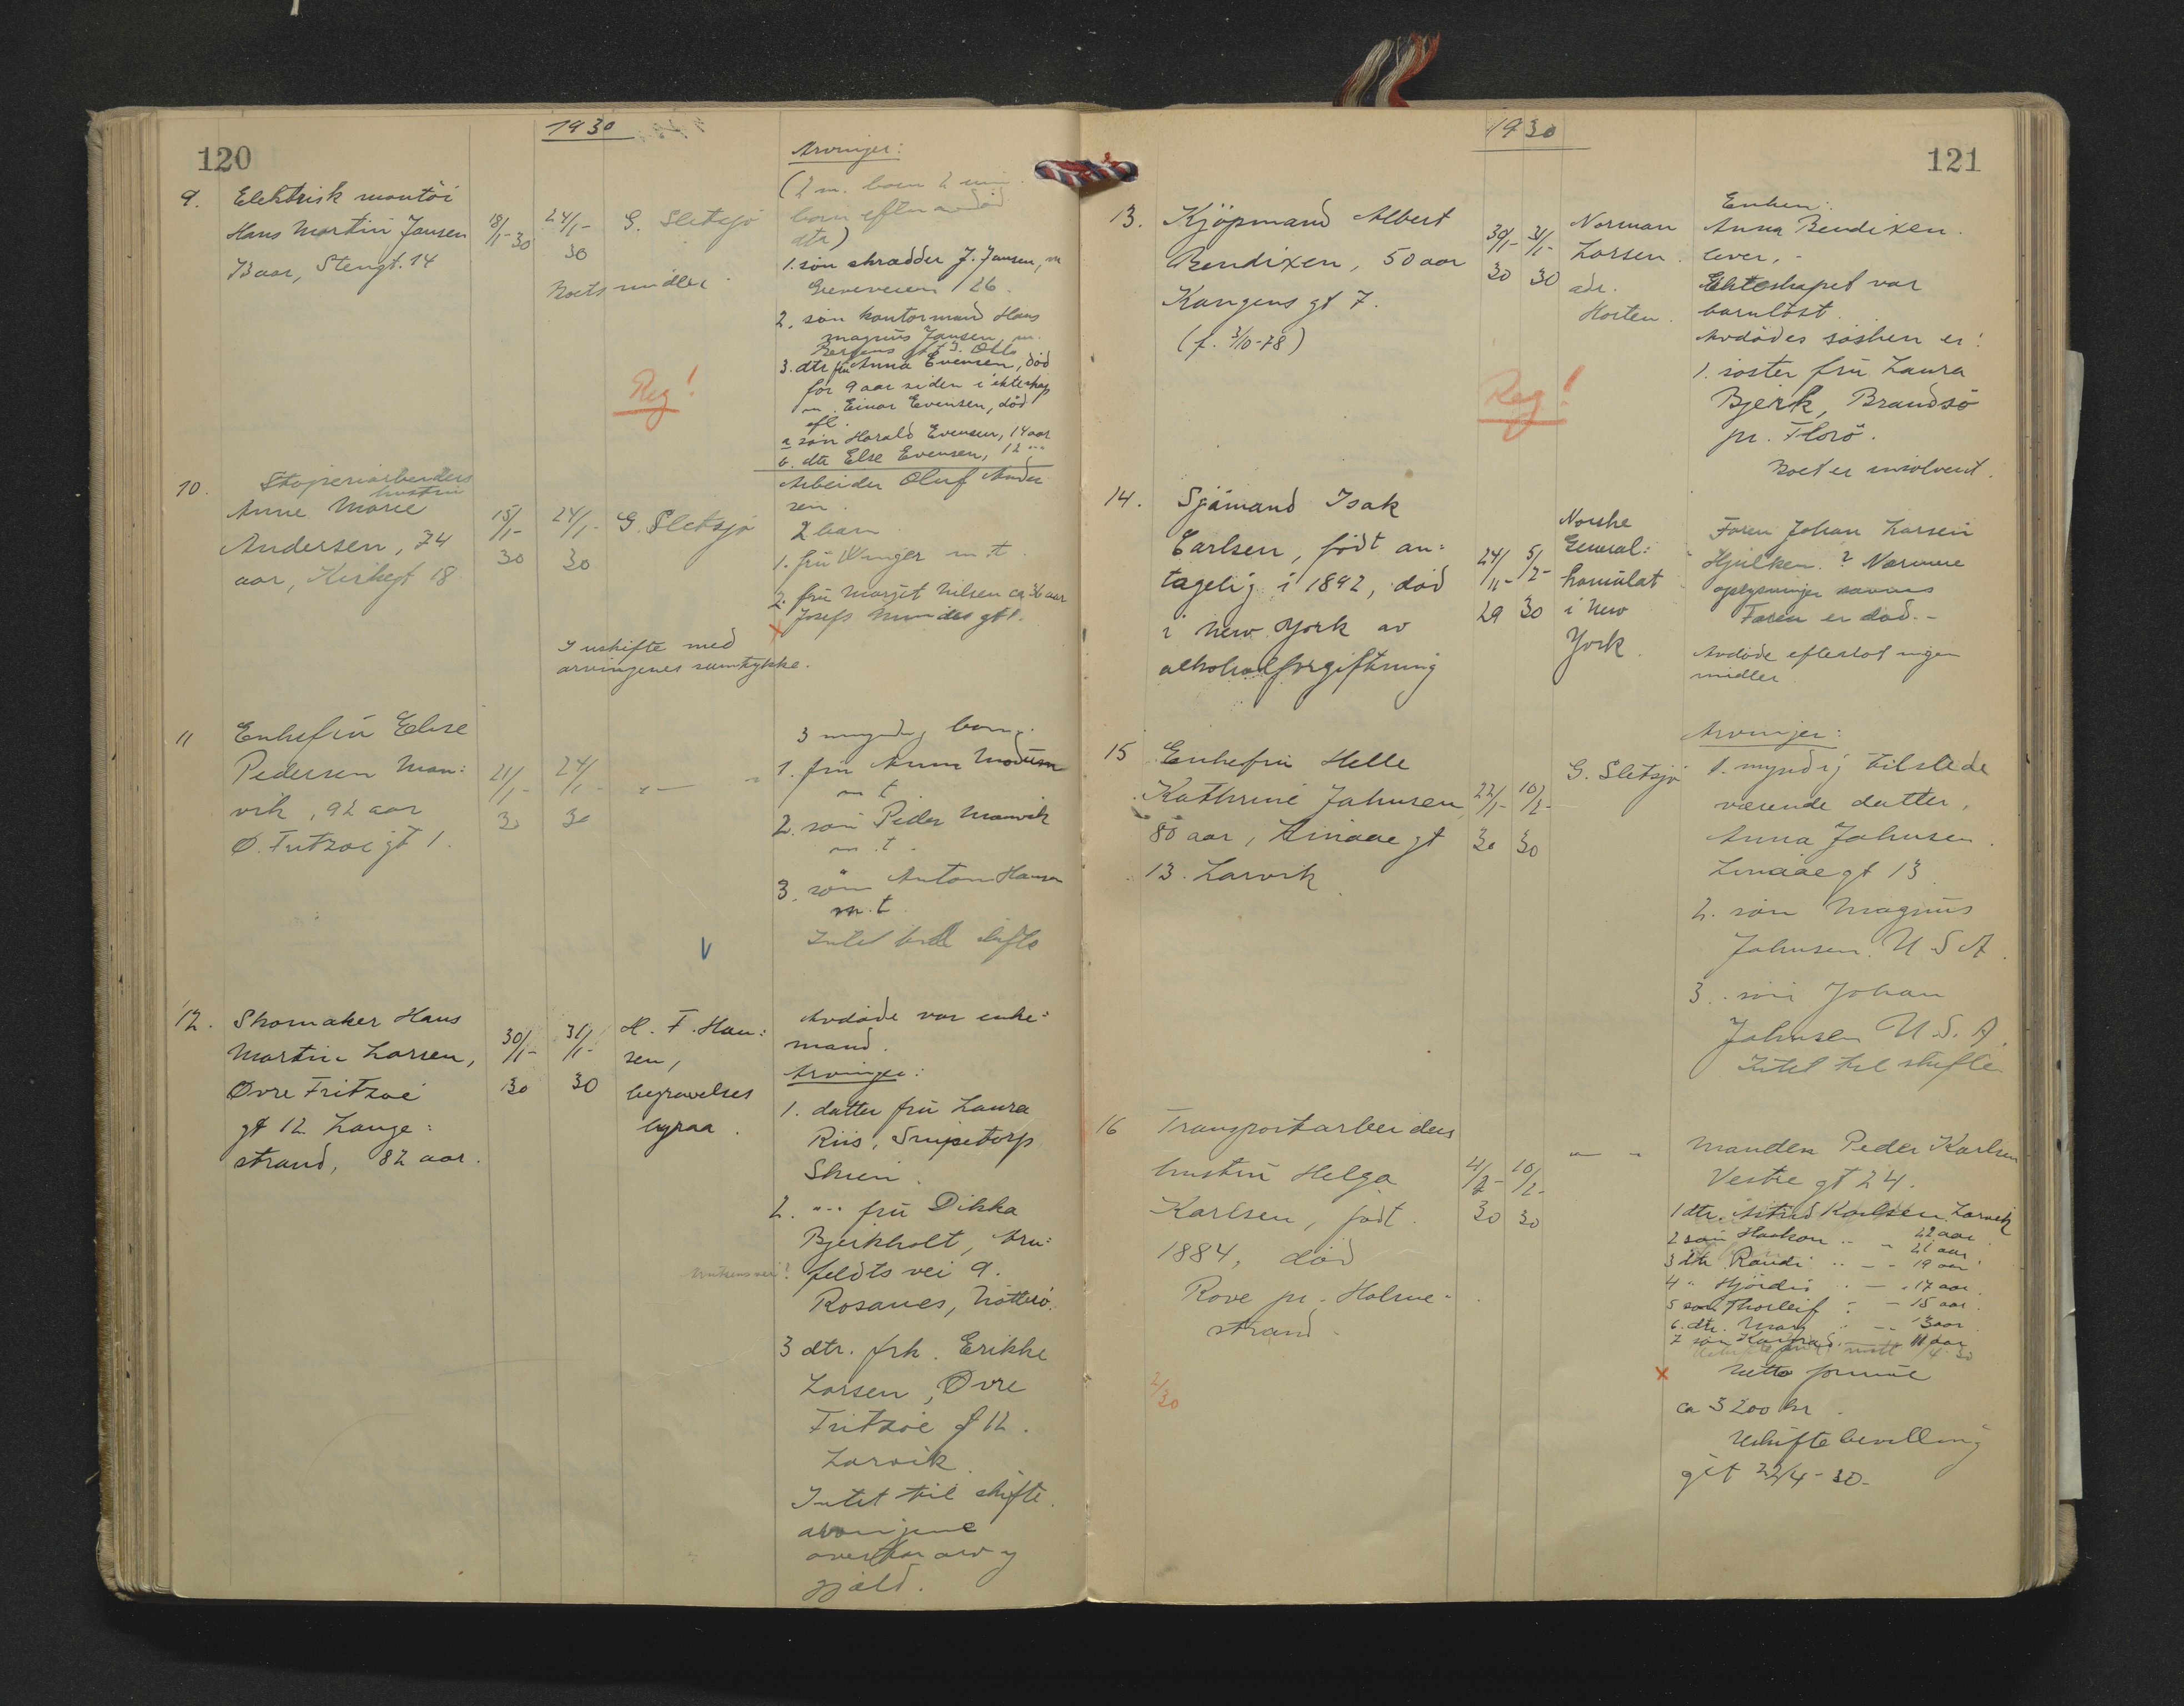 120
1930
9. Elektrisk montör
Hans Martin Jansen
Baar, Stengt. 14
18/1-30
24/1-
30
G. Sletsjö
Boets midler
Reg!
Arvinger:
(2 m. barn 2
barn efter
dtr)
1. sön skrædder J. Jansen, m
Greveveien 26.
2. sön kontormand Hans
Magnus Jansen, m.
3. dtr fru Anna Evensen, död
for 9 aar siden i ekteskap
m. Einar Evensen, död
efl.
a sön Harald Evensen, 14 aar
b. dtr Else Evensen, 12 "
10.
hustru
Anne Marie
Andersen, 74
aar, Kirkegt 18
15/1-
30
24/1-
30
G. Sletsjö
I uskifte med
arvingenes samtykke.
Arbeider Oluf Ander
sen.
2 barn
1. fru Unger m.t.
2. fru Margit Nilsen ca 36 aar
11
Enkefru Elise
Pedersen Man=
vik, 92 aar
Ö. Fritzöegt 1.
21/1-
30
24/1-
30
" — "
3 myndig barn.
1. fru Anna Modum
m t
2. sön Peder Manvik
m.t.
3. sön Anton Hansen
m.t.
Intet til skifte
12.
Skomaker Hans
Martin Larsen,
Övre Fritzöe
gt 12 Lange=
strand, 82 aar.
30/1-
30
31/1-
30
H. F. Han=
sen,
begravelses
byraa.
Avdöde var enke=
mand.
Arvinger:
1. datter fru Laura
Riis, Snipetorp
Skien.
2. "- fru Dikka
Bjerkholt, Aru=
feldts vei 9.
Rosanes, Nötterö.
3 dtr. frk. Erikke
Larsen, Övre
Fritzöe gt 12.
Larvik
Intet til skifte.
arvingene
overtar arv og
gjæld.
1930
121
13. Kjöpmand Albert
Bendixen, 50 aar
Kongens gt 7.
(f. 3/10-78)
30/1-
30
31/1-
30
Norman
Larsen.
adr.
Horten.
Reg!
Enken:
Anna Bendixen.
lever, -
Ekteskapet var
barnlöst.
Avdödes sösken er:
1. söster fru Laura
Bjerk, Brandsö
pr. Florö.
Boet er insolvent.
14. Sjömand Isak
Carlsen, födt an=
tagelig i 1892, död
i New York av
alkoholforgiftning
24/11-
29
5/2-
30
Norske
General=
konsulat
i New
York.
Faren Johan Larsen
Hjulken? Nærmere
oplysninger savnes
Faren er död.-
Avdöde efterlot ingen
midler
15 Enkefru Helle
Kathrine Johnsen,
80 aar, Linaae gt
13. Larvik
22/1-
30
10/2-
30
G. Sletsjö
Arvinger:
1. myndig tilstede
værende datter,
Anna Johnsen.
Linaae gt 13
2. sön Magnus
Johnsen. U S A.
3. sön Johan
Johnsen U.S.A.
Intet til skifte
16 Transportarbeiders
hustru Helga
Karlsen, födt.
1884, död
Rove pr. Holme=
strand.
2/30
4/2-
30
10/2-
30
" — "
Manden Peder Karlsen
Vestre gt 24.
1 dtr. Astrid Karlsen Larvik
22 aar
2 sön Haakon " - 21 aar
3 dtr Randi " - - 19 aar
4 " Hjördis " - 17 aar
5 sön Thorleif " - 15 aar.
6. dtr. Mary " - 13 aar
7 sön Konrad - 11 aar
x Netto formue
ca 3200 kr.
Uskiftebevilling
git 22/4-30-